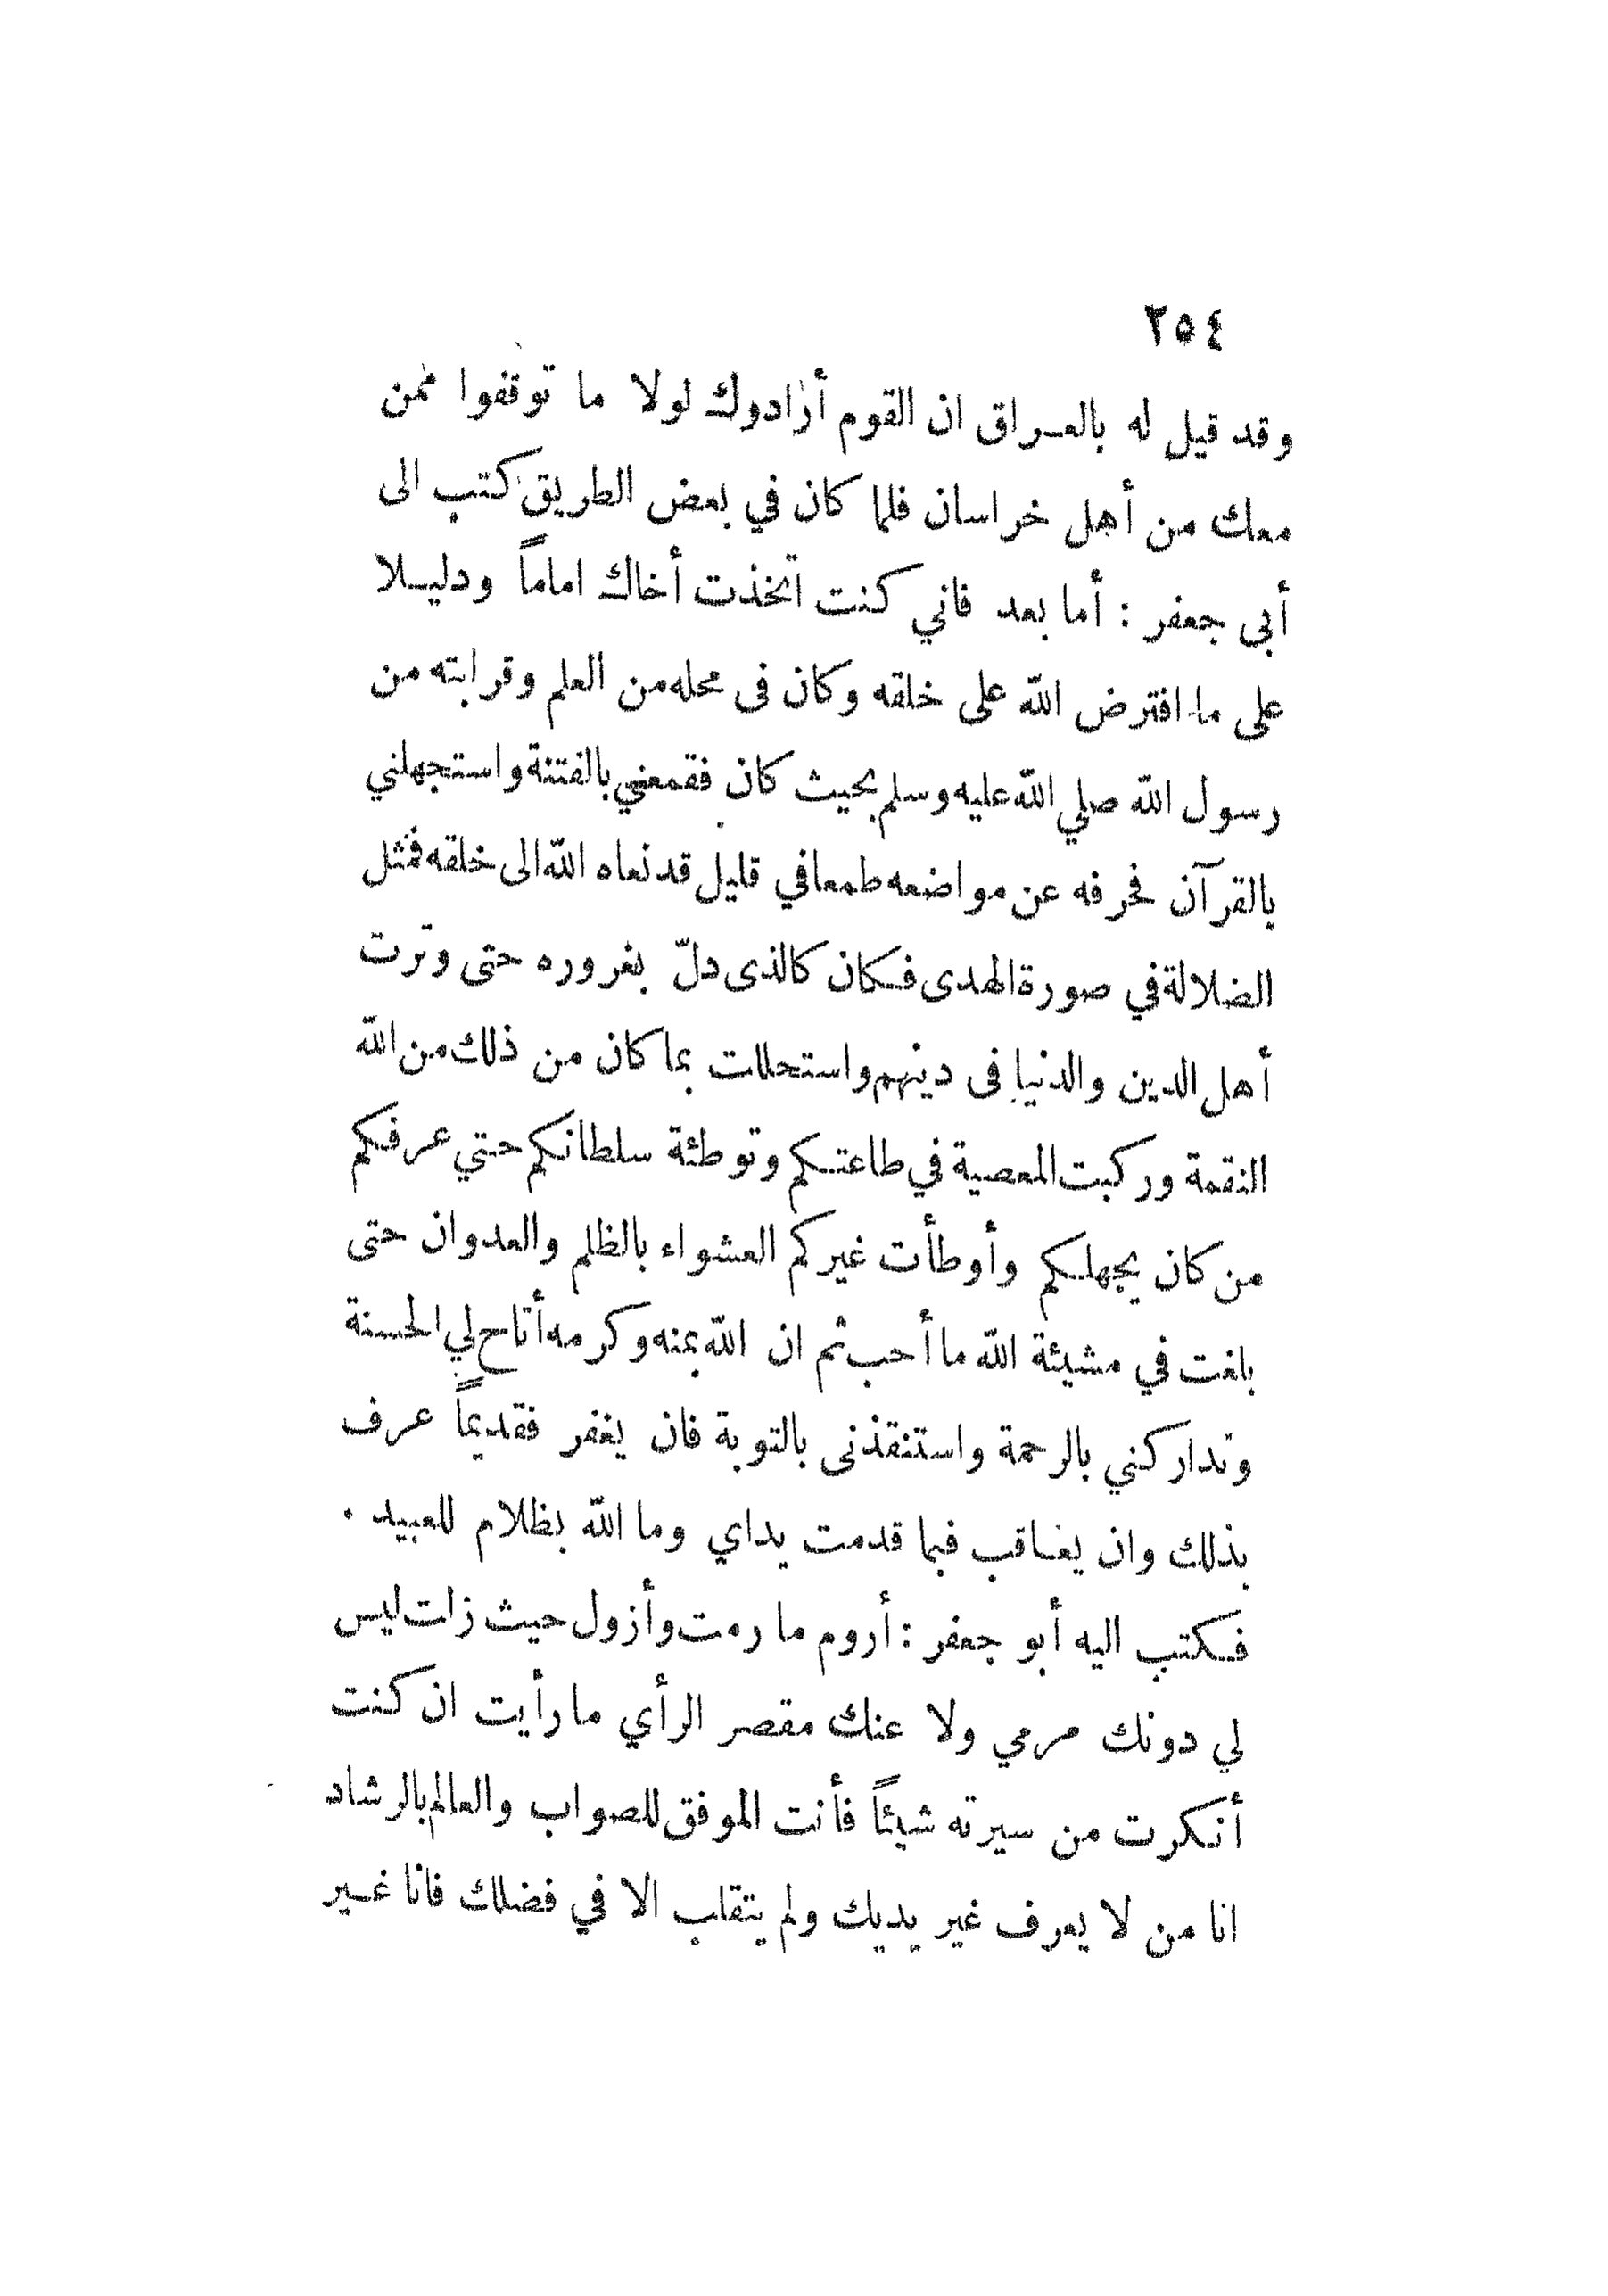 ٢٥٤
وقد قيل له بالعراق ان القوم أرادوك لولا ما توقفوا ممن
معك من أهل خراسان فلما كان في بعض الطريق كتب الى
أبى جعفر : أما بعد فاني كنت اتخذت أخاك اماماً ودليلا
على ما افترض الله على خلقه وكان فى محله من العلم وقرابته من
رسول الله صلي الله عليه وسلم بحيث كان فقمعني بالفتنة واستجهلني
بالقرآن فحرفه عن مواضعه طمعا في قليل قد نعاه الله الى خلقه فمثل
الضلالة في صورة الهدى فكان كالذى دلّ بغروره حتى وترت
أهل الدين والدنيا فى دينهم واستحللت بما كان من ذلك من الله
النقمة وركبت المعصية في طاعتكم وتوطئة سلطانكم حتي عرفكم
من كان يجهلكم وأوطأت غيركم العشواء بالظلم والعدوان حتى
بلغت في مشيئة الله ما أحب ثم ان الله بمنه وكرمه أتاح لي الحسنة
وتداركني بالرحمة واستنقذنى بالتوبة فان يغفر فقديماً عرف
بذلك وان يعاقب فبما قدمت يداي وما الله بظلام للعبيد .
فكتب اليه أبو جعفر : أروم ما رمت وأزول حيث زلت ليس
لي دونك مرمي ولا عنك مقصر الرأي ما رأيت ان كنت
أنكرت من سيرته شيئاً فأنت الموفق للصواب والعالم بالرشاد
انا من لا يعرف غير يديك ولم يتقلب الا في فضلك فانا غير